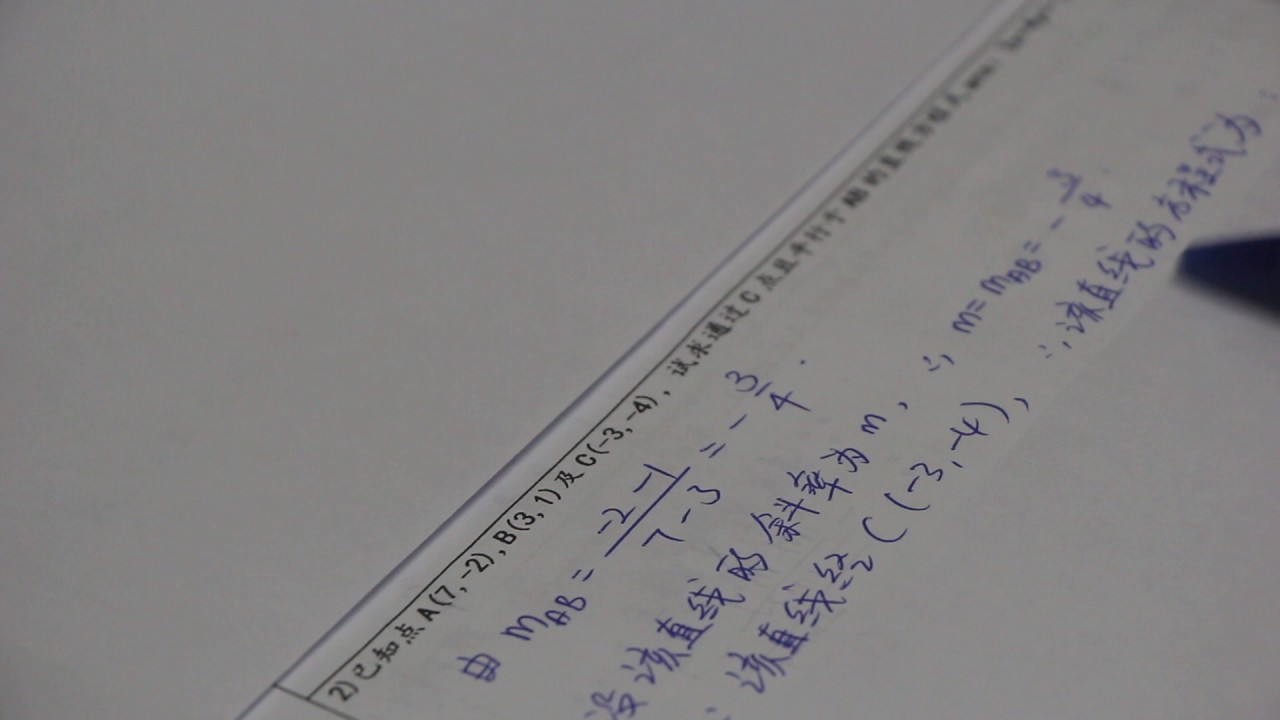 2)已知点 A(7,-2),B(3,1)及 C(-3,-4), 试求通过 C 点且平行于 AB 的直线方程式。
由 mAB = (-2-1)/(7-3) = -3/4.
设该直线的斜率为 m, ∴ m = mAB = -3/4.
该直线经 C(-3,-4), ∴ 该直线的方程式为: